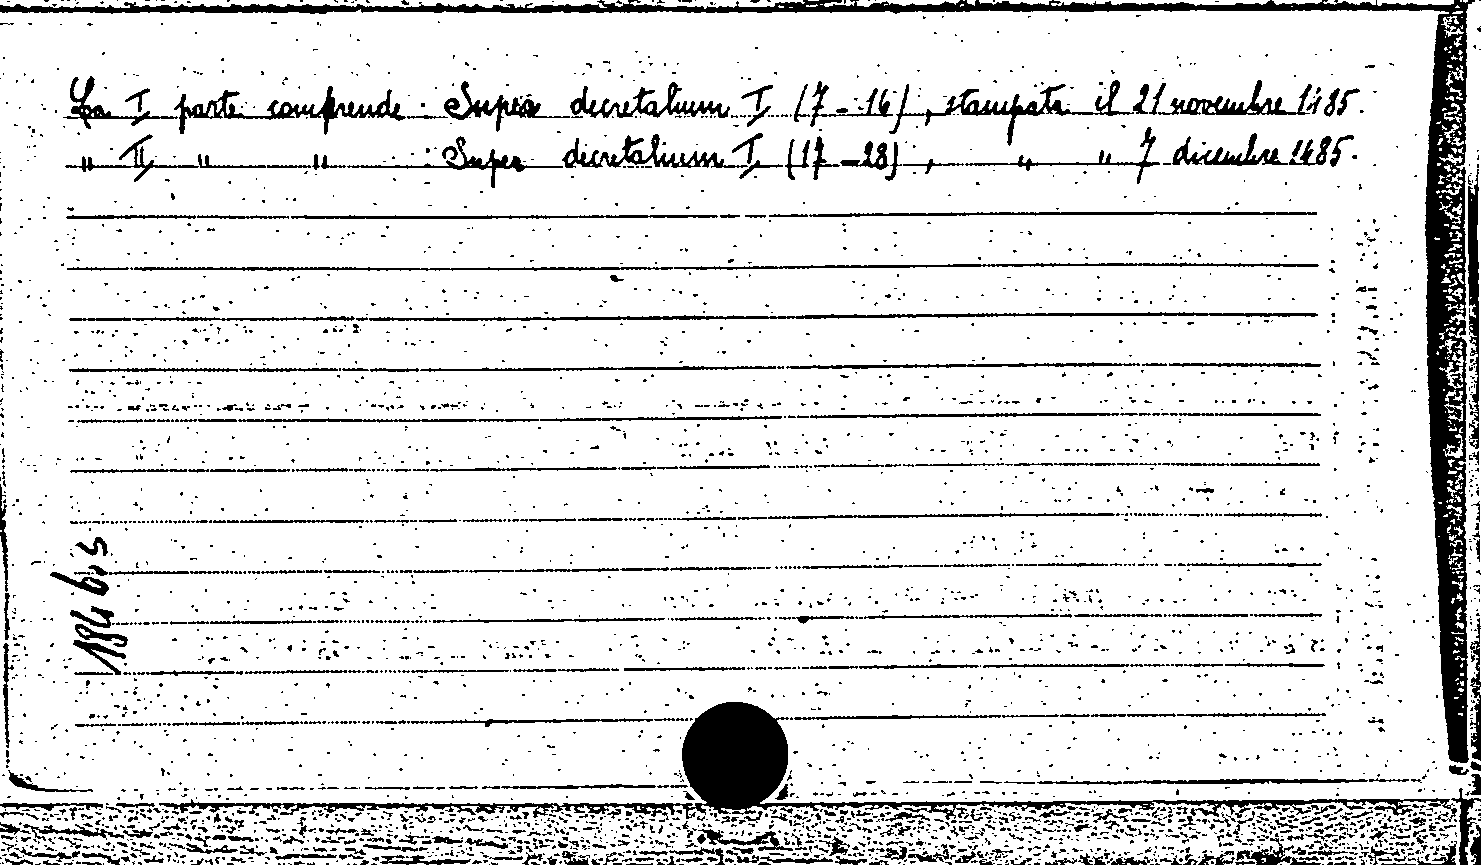 La I parte comprende : Super decretalium I (7-16), stampata il 21 novembre 1485.
" II " " : Super decretalium I (17-28), " " 7 dicembre 1485.
184 bis